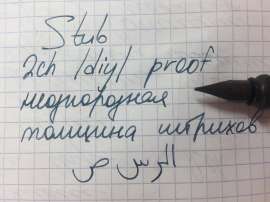 Stub
2ch /diy/ proof
неоднородная
толщина штрихов
الرس ص